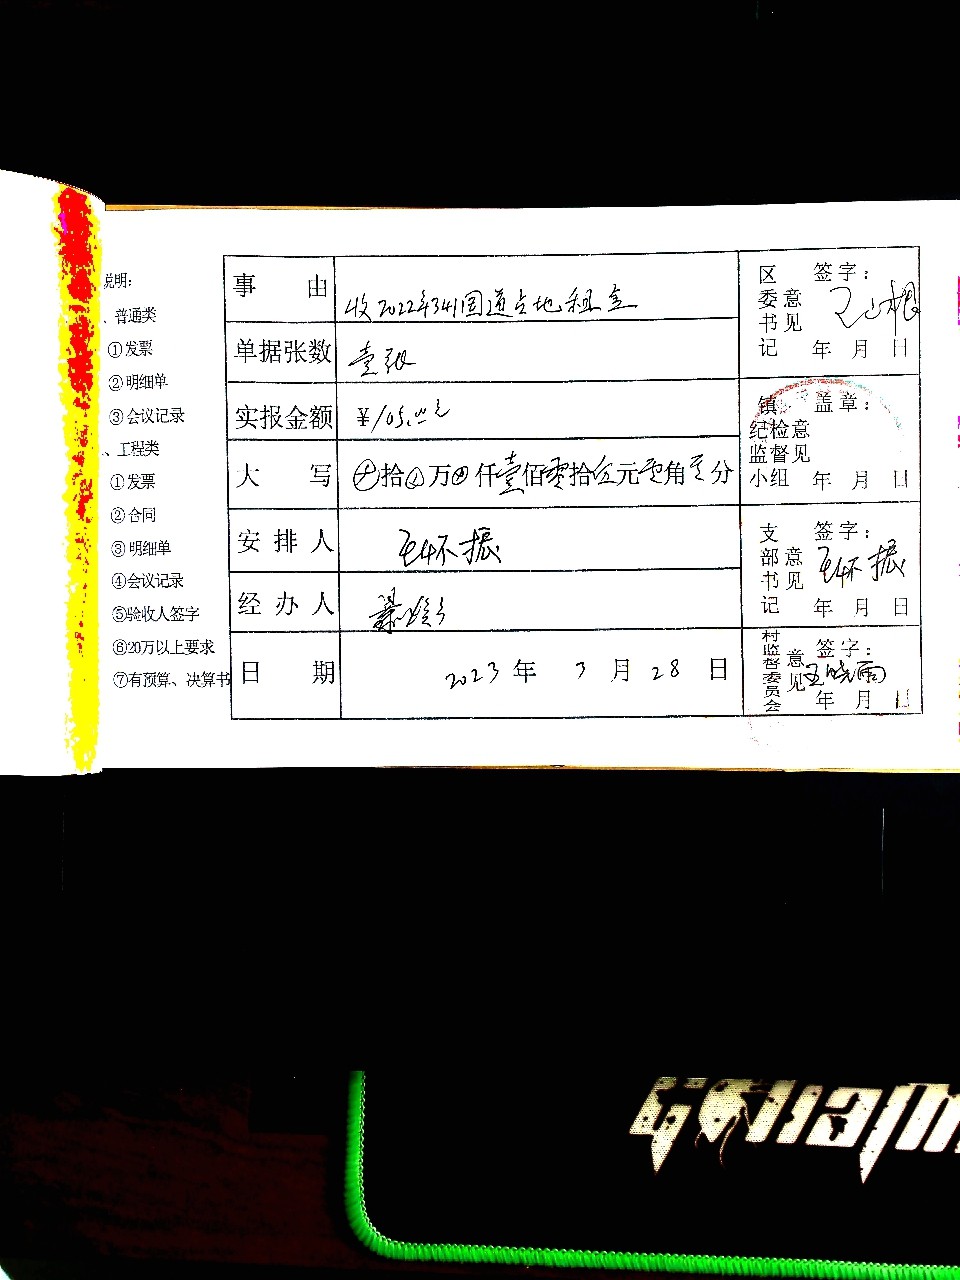 说明:
、普通类
①发票
②明细单
③会议记录
、工程类
①发票
②合同
③明细单
④会议记录
⑤验收人签字
⑥20万以上要求
⑦有预算、决算书
事由 收2022年341国道占地租金
单据张数 壹张
实报金额 ¥105.00元
大写 拾万仟壹佰零拾伍元零角零分
安排人 王怀振
经办人
日期 2023年3月28日
区委书记意见 签字:
年月日
镇纪检监督小组意见 盖章:
年月日
支部书记意见 签字: 王怀振
年月日
村监督委员会意见 签字: 王晓雨
年月日